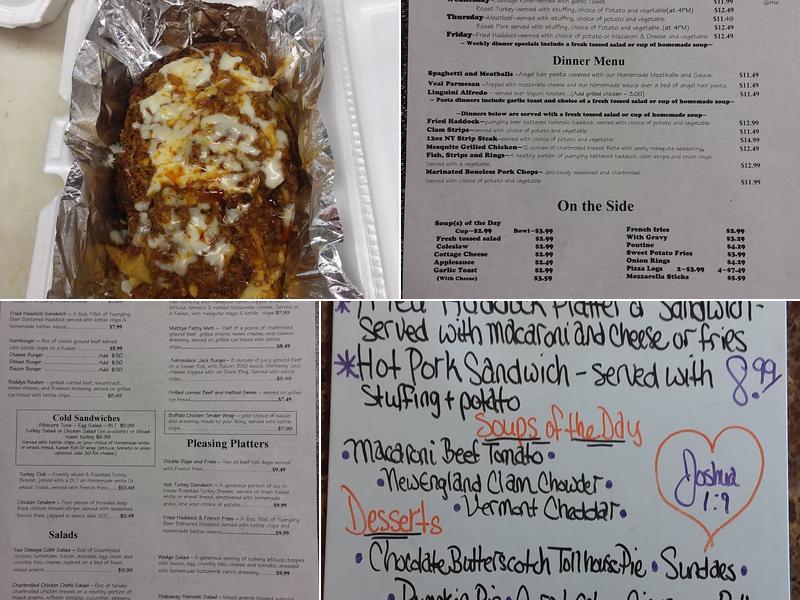 Roast Turkey-served with stuffing, choice of Potato and vegetable(at 4PM) $12.49
Thursday~Meatloaf-with stuffing, choice of potato and vegetable $11.49
Roast Pork served with stuffing, choice of potato and vegetable.(at 4PM) $12.49
Friday~Fried Haddock-served with choice of potato or Macaroni & Cheese and vegetable $12.49
~ Weekly dinner specials include a fresh tossed salad or cup of homemade soup~
Gone.
Dinner Menu
Spaghetti and Meatballs ~Angel hair pasta covered with our Homemade Meatballs and Sauce. $11.49
Veal Parmesan ~Topped with mozzarella cheese and our homemade sauce over a bed of angel hair pasta. $11.49
Linguini Alfredo ~ served over linguni noodles...(Add grilled chicken ~ 3.00) $11.49
~ Pasta dinners include garlic toast and choice of a fresh tossed salad or cup of homemade soup~
~Dinners below are served with a fresh tossed salad or cup of homemade soup~
Fried Haddock~yuengling beer battered Icelandic haddock, served with choice of potato and vegetable $12.99
Clam Strips~served with choice of potato and vegetable $11.49
12oz NY Strip Steak ~served with choice of potato and vegetable $14.99
Mesquite Grilled Chicken~12 ounces of charbroiled breast filets with zesty mesquite seasoning, $12.49
Fish, Strips and Rings~ A healthy portion of yuengling battered haddock, clam strips and onion rings.
Served with a vegetable. $12.99
Marinated Boneless Pork Chops~ deliciously seasoned and charbroiled.
Served with choice of potato and vegetable $11.99
On the Side
Soup(s) of the Day
Cup~$2.99 Bowl~$3.99
Fresh tossed salad $2.99
Coleslaw $2.99
Cottage Cheese $2.99
Applesauce $2.49
Garlic Toast $2.99
(With Cheese) $3.59
French fries $2.99
With Gravy $3.29
Poutine $4.29
Sweet Potato Fries $3.99
Onion Rings $4.29
Pizza Logs 2~$3.99 4~$7.49
Mozzarella Sticks $5.59
Fried Haddock Sandwich ~ A 8oz. fillet of Yuengling
Beer Battered Haddock served with kettle chips &
homemade tartar sauce $7.99
Hamburger ~ 8oz of choice ground beef served
with kettle chips on a Kaiser $5.99
Cheese Burger Add $.50
Deluxe Burger Add $.50
Bacon Burger Add $.50
Roddys Reuben ~ grilled corned beef, sauerkraut,
swiss cheese, and Russian dressing, served on grilled
rye bread with kettle chips $8.49
Cold Sandwiches
Albacore Tuna ~ Egg Salad ~ BLT
Turkey Salad or Chicken Salad (as available) or Sliced
roast turkey
Served with Kettle chips, on your choice of Homemade white
or wheat bread, Kaiser Roll or wrap (lettuce, tomato or onion
optional, add .50 for cheese)
Turkey Club ~ Freshly sliced & Roasted Turkey
Breast, joined with a BLT on Homemade White
or Wheat toast, served with French fries
Chicken Tenders ~ Four pieces of breaded deep
fried chicken breast strips, served with seasoned
french fries. (dipped in sauce add .50)
Salads
tomato & melted mozzarella cheese, Served on
a Kaiser, with mesquite mayo & kettle chips $7.99
Mattys Patty Melt ~ Half of a pound of charbroiled
ground beef, grilled onions, swiss cheese, and russian
dressing, served on grilled rye bread with kettle
chips $8.49
Adirondack Jack Burger~ 8 ounces of juicy ground beef
on a Kaiser Roll, with Bacon, BBQ sauce, Monterey Jack
cheese, topped with an Onion Ring. Served with kettle
chips $8.49
Grilled corned Beef and melted Swiss ~ served on grilled
rye bread $7.49
Buffalo Chicken Tender Wrap ~ your choice of sauce
and dressing, made to your liking, served with kettle
chips $7.99
Pleasing Platters
Double Dogs and Fries ~ Two all beef hot dogs served
with French fries $6.49
Hot Turkey Sandwich ~ A generous portion of our in-
house Roasted Turkey Breast, served on fresh baked
white or wheat bread, smothered with homemade
gravy, and your choice of potato $9.99
Fried Haddock & French Fries ~ A 8oz. fillet of Yuengling
Beer Battered Haddock served with kettle chips and
homemade tartar sauce $9.99
Wedge Salad ~ A generous serving of iceberg lettuce, topped
with bacon, egg, crumbly bleu cheese and tomato, dressed
with homemade buttermilk ranch dressing $9.99
* Fried Haddock Platter or Sandwich-
served with macaroni and cheese or fries
*Hot Pork Sandwich - served with 8.99
stuffing + potato
Soups of the Day
• Macaroni Beef Tomato •
• New England Clam Chowder •
• Vermont Cheddar •
Joshua
1:9
Desserts
• Chocolate Butterscotch Tollhouse Pie • Sundaes •